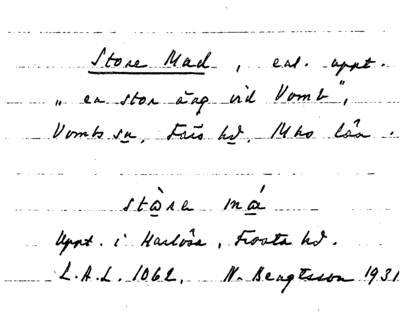 Store Mad, enl. uppt.
"en stor äng vid Vomb",
Vombs sn, Färs hd, Mhs län.
stòre má
Uppt. i Harlösa, Frosta hd.
L.A.L. 1062. N. Bengtsson 1931